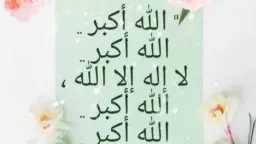 " الله أكبر ..
الله أكبر ..
لا إله إلا الله ،
الله أكبر ..
الله أكبر